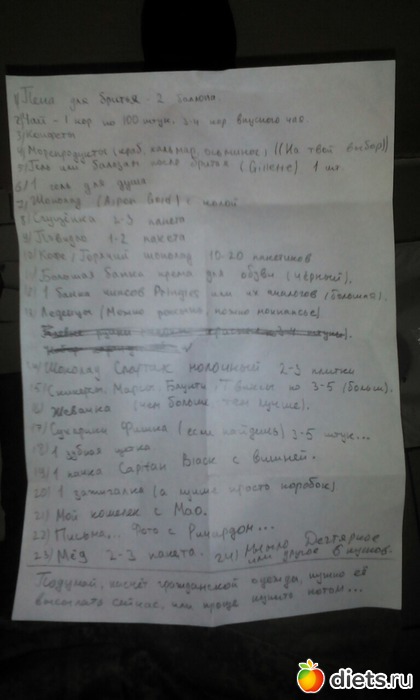 1) Пена для бритья - 2 балона.
2) Чай - 1 кор. по 100 штук, 3-4 кор вкусного чаю.
3) Конфеты
4) Морепродукты (краб, кальмар, осьминог, ((На твой выбор))
5) Гель или бальзам после бритья (Gillette) 1 шт.
6) 1 гель для душа
7) Шоколад (Alpen Gold)
8) Сгущёнка 2-3 пакета
9) Повидло 1-2 пакета
10) Кофе / Горячий шоколад 10-20 пакетиков
11) Большая банка крема для обуви (чёрный).
12) 1 банка чипсов Pringles или их аналогов (большая).
13) Леденцы (Можно можно
14) Шоколад Спартак молочный 2-3 плитки
15) Сникерсы, Марсы, Баунти, Твиксы по 3-5 (больш).
16) Жвачка (чем больше тем лучше).
17) Сухарики Фишка (если найдёшь) 3-5 штук...
18) 1 зубная щётка
19) 1 пачка Capitan Black с вишней.
20) 1 зажигалка (а лучше просто коробок)
21) Мой кошелек с Мао.
22) Письма... Фото с Ричардом...
23) Мёд 2-3 пакета. 24) Мыло Дегтярное
или другое
Подумай, насчёт гражданской одежды, нужно её
высылать сейчас, или проще купить потом...
diets.ru